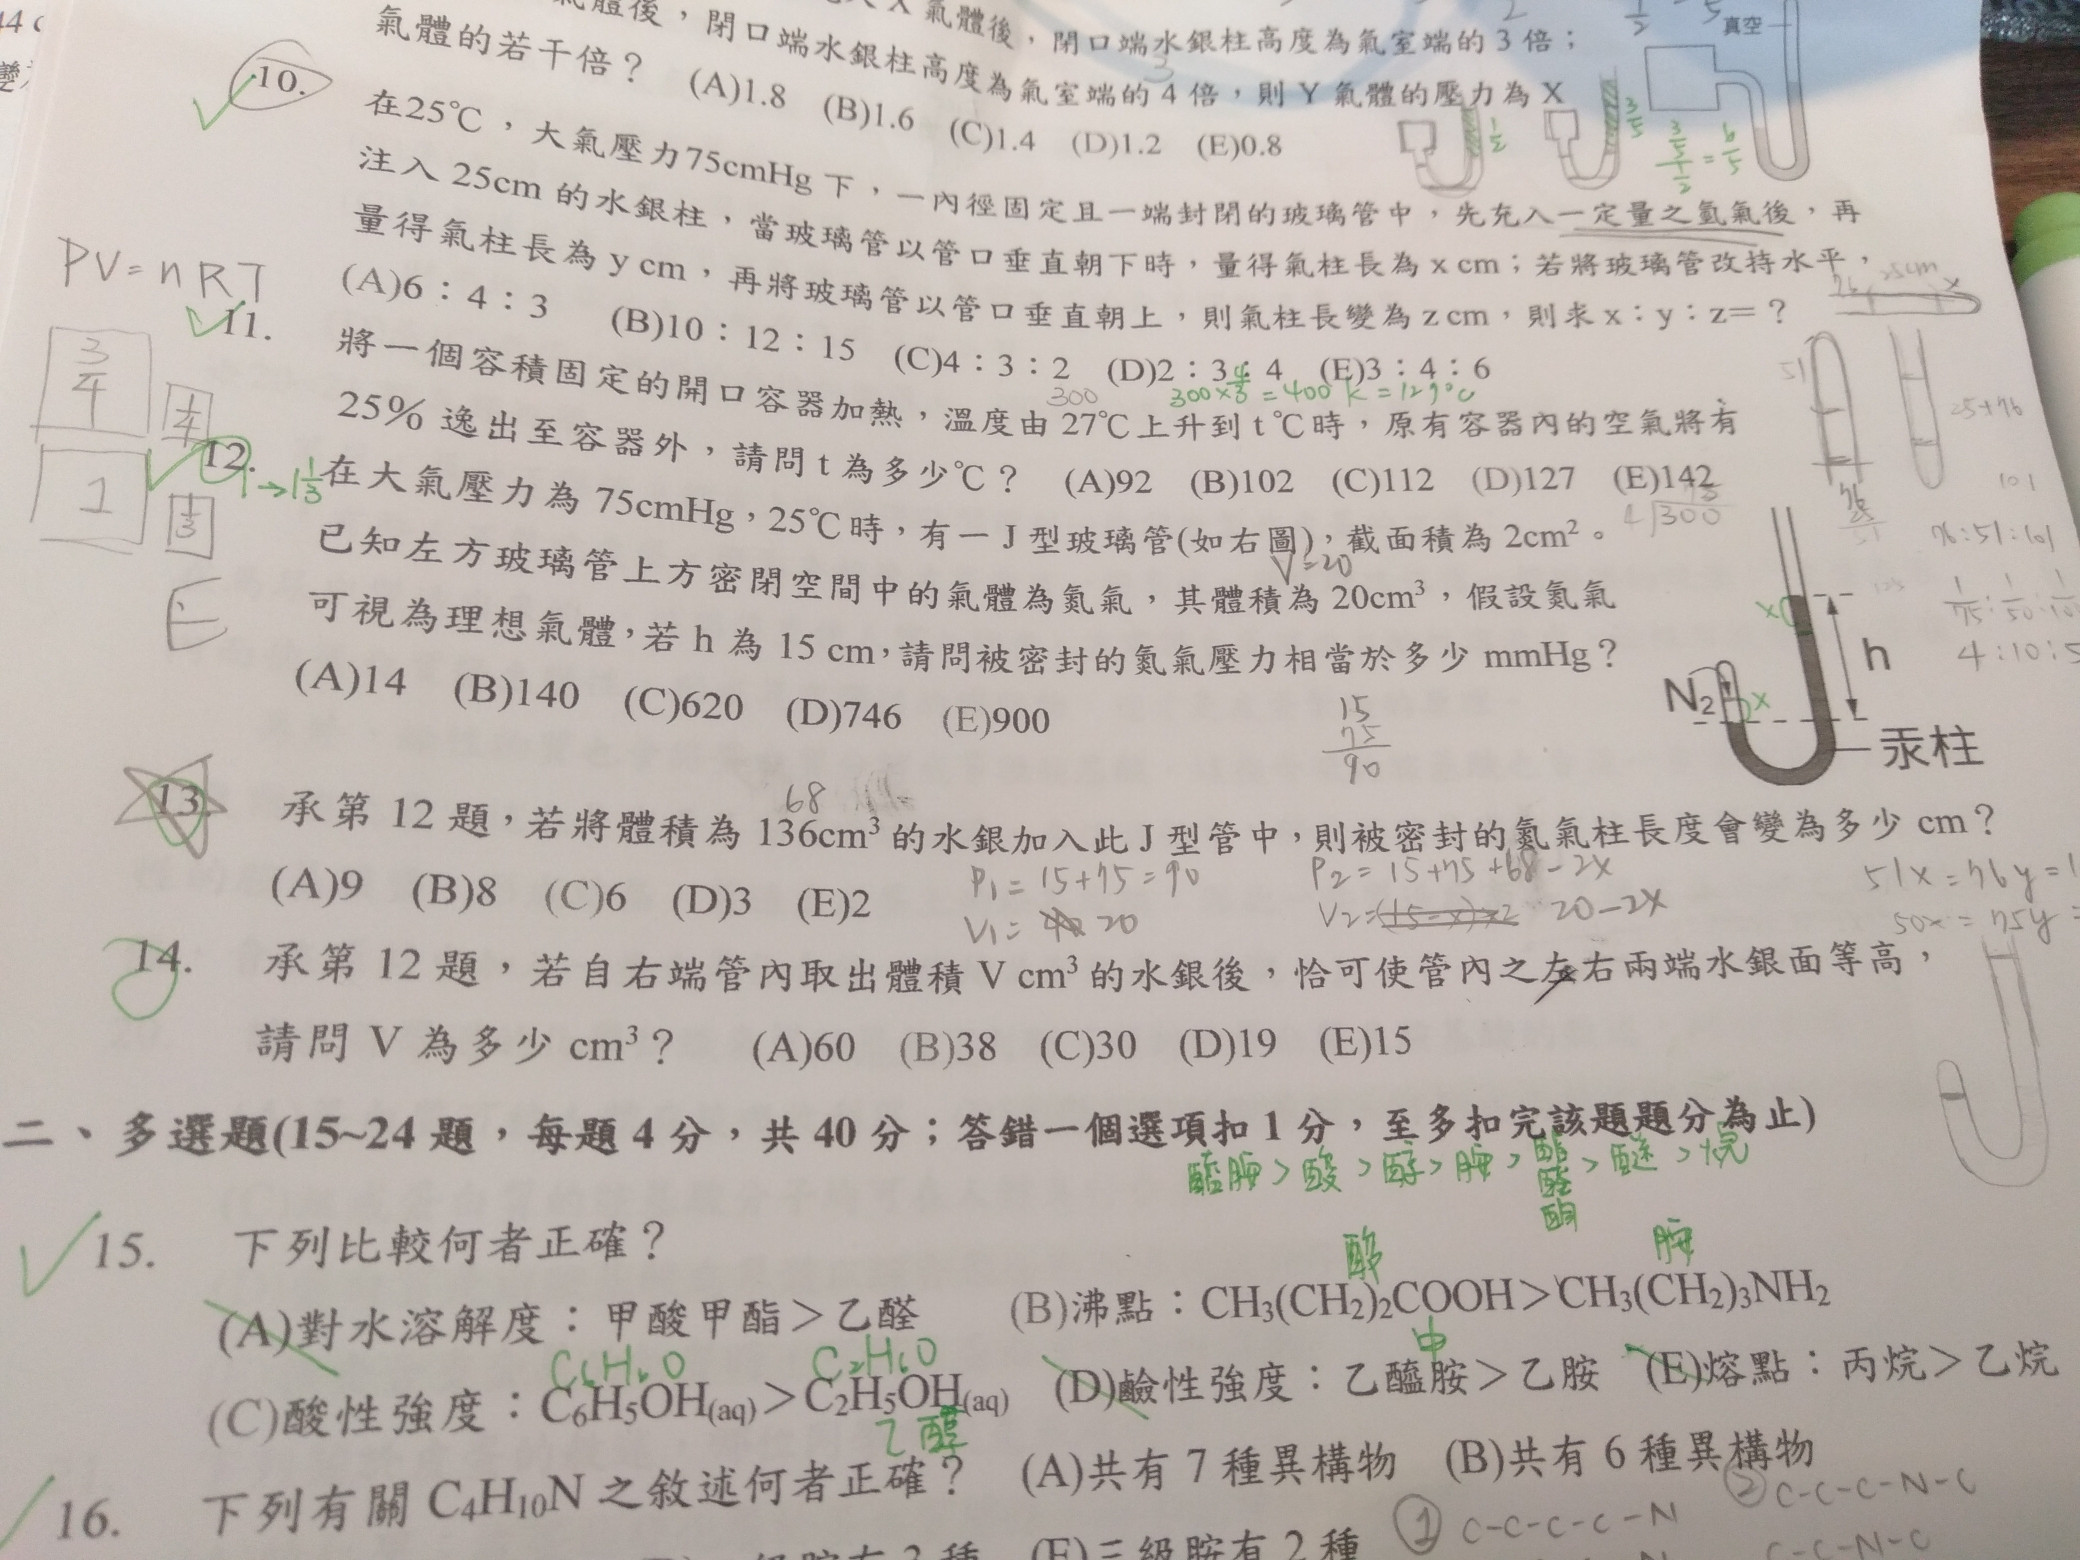 氣體後,閉口端水銀柱高度為氣室端的 3 倍;
氣體後,閉口端水銀柱高度為氣室端的 4 倍,則 Y 氣體的壓力為 X
氣體的若干倍? (A)1.8 (B)1.6 (C)1.4 (D)1.2 (E)0.8
真空
10. 在25℃,大氣壓力75cmHg 下,一內徑固定且一端封閉的玻璃管中,先充入一定量之氫氣後,再
注入 25cm 的水銀柱,當玻璃管以管口垂直朝下時,量得氣柱長為 x cm;若將玻璃管改持水平,
量得氣柱長為 y cm,再將玻璃管以管口垂直朝上,則氣柱長變為 z cm,則求 x:y:z=?
(A)6:4:3 (B)10:12:15 (C)4:3:2 (D)2:3:4 (E)3:4:6
PV=nRT
300
300×4/3=400 K=127°C
11. 將一個容積固定的開口容器加熱,溫度由 27℃上升到 t℃時,原有容器內的空氣將有
25% 逸出至容器外,請問 t 為多少℃? (A)92 (B)102 (C)112 (D)127 (E)142
3/4
1/4
1
1/3
1→1 1/3
12. 在大氣壓力為 75cmHg,25℃時,有一 J 型玻璃管(如右圖),截面積為 2cm²。
V=20
已知左方玻璃管上方密閉空間中的氣體為氮氣,其體積為 20cm³,假設氮氣
可視為理想氣體,若 h 為 15 cm,請問被密封的氮氣壓力相當於多少 mmHg?
(A)14 (B)140 (C)620 (D)746 (E)900
h
N₂
汞柱
15
75
90
68
13. 承第 12 題,若將體積為 136cm³ 的水銀加入此 J 型管中,則被密封的氮氣柱長度會變為多少 cm?
(A)9 (B)8 (C)6 (D)3 (E)2
P₁=15+75=90
P₂=15+75+68-2x
V₁= 20
V₂= 20-2x
14. 承第 12 題,若自右端管內取出體積 V cm³ 的水銀後,恰可使管內之左右兩端水銀面等高,
請問 V 為多少 cm³? (A)60 (B)38 (C)30 (D)19 (E)15
二、多選題(15~24 題,每題 4 分,共 40 分;答錯一個選項扣 1 分,至多扣完該題題分為止)
醯胺>酸>醇>胺>酯醛酮>醚>烷
15. 下列比較何者正確?
胺
(A)對水溶解度:甲酸甲酯>乙醛 (B)沸點:CH₃(CH₂)₂COOH>CH₃(CH₂)₃NH₂
C₆H₆O
C₂H₆O
中
(C)酸性強度:C₆H₅OH(aq)>C₂H₅OH(aq) (D)鹼性強度:乙醯胺>乙胺 (E)熔點:丙烷>乙烷
乙醇
16. 下列有關 C₄H₁₀N 之敘述何者正確? (A)共有 7 種異構物 (B)共有 6 種異構物
① C-C-C-C-N
② C-C-C-N-C
(E)三級胺有 2 種